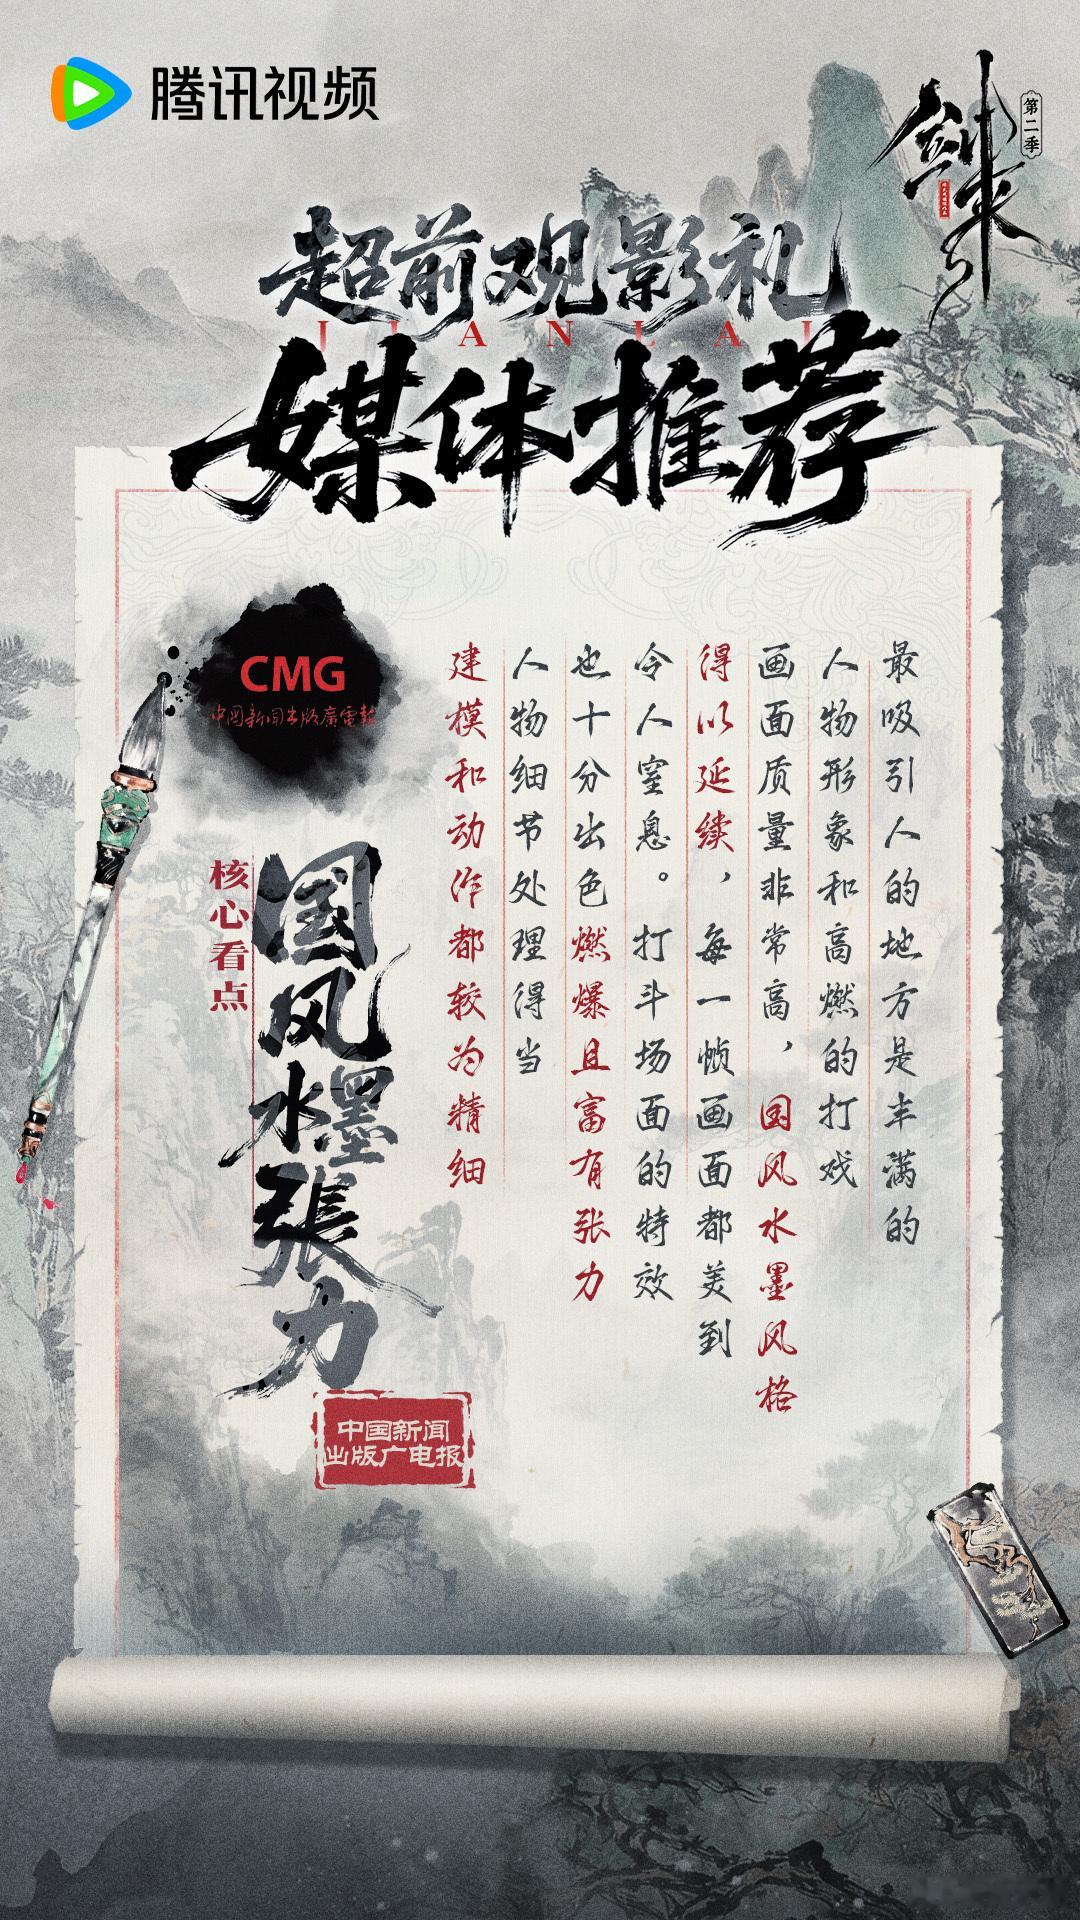 腾讯视频
剑来
第二季
超前观影礼
JIANLAI
媒体推荐
最吸引人的地方是丰满的
人物形象和高燃的打戏
画面质量非常高，国风水墨风格
得以延续，每一帧画面都美到
令人窒息。打斗场面的特效
也十分出色燃爆且富有张力
人物细节处理得当
建模和动作都较为精细
CMG
中国新闻出版广电報
核心看点
国风水墨張力
中国新闻
出版广电报